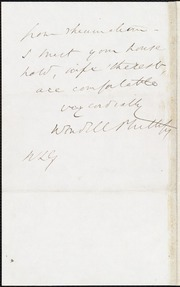 from rheumatism –
I trust your house
hold, wife & the rest,
are comfortable
very cordially
Wendell Phillips
WLG